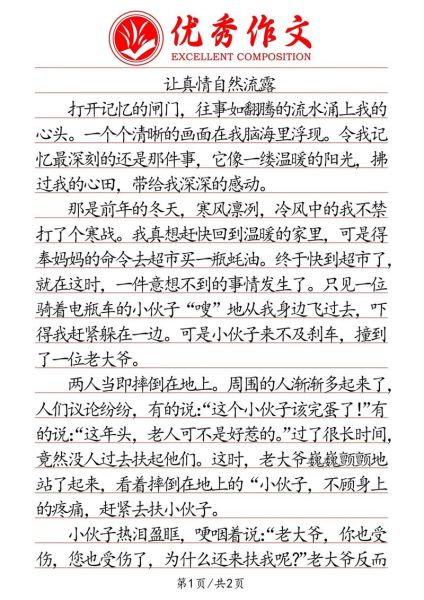 优秀作文
EXCELLENT COMPOSITION
让真情自然流露
打开记忆的闸门，往事如翻腾的流水涌上我的
心头。一个个清晰的画面在我脑海里浮现。令我记
忆最深刻的还是那件事，它像一缕温暖的阳光，拂
过我的心田，带给我深深的感动。
那是前年的冬天，寒风凛冽，冷风中的我不禁
打了个寒战。我真想赶快回到温暖的家里，可是得
奉妈妈的命令去超市买一瓶蚝油。终于快到超市了，
就在这时，一件意想不到的事情发生了。只见一位
骑着电瓶车的小伙子“嗖”地从我身边飞过去，吓
得我赶紧躲在一边。可是小伙子来不及刹车，撞到
了一位老大爷。
两人当即摔倒在地上。周围的人渐渐多起来了，
人们议论纷纷，有的说：“这个小伙子该完蛋了！”有
的说：“这年头，老人可不是好惹的。”过了很长时间，
竟然没人过去扶起他们。这时，老大爷巍巍颤颤地
站了起来，看着摔倒在地上的“小伙子，不顾身上
的疼痛，赶紧去扶小伙子。
小伙子热泪盈眶，哽咽着说：“老大爷，你也受
伤，您也受伤了，为什么还来扶我呢？”老大爷反而
第1页/共2页